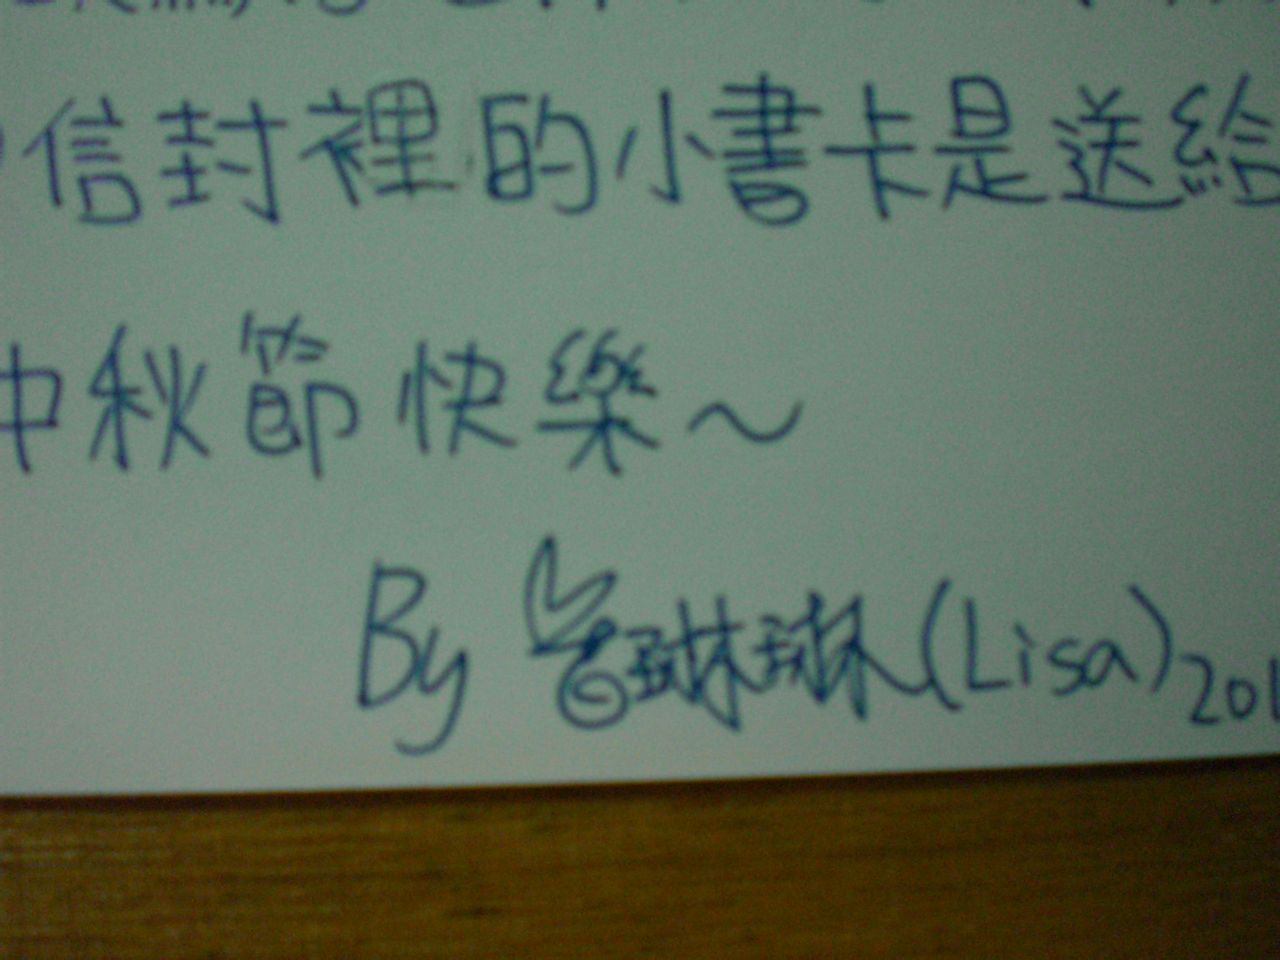 信封裡的小書卡是送給
中秋節快樂~
By 琳琳(Lisa) 201